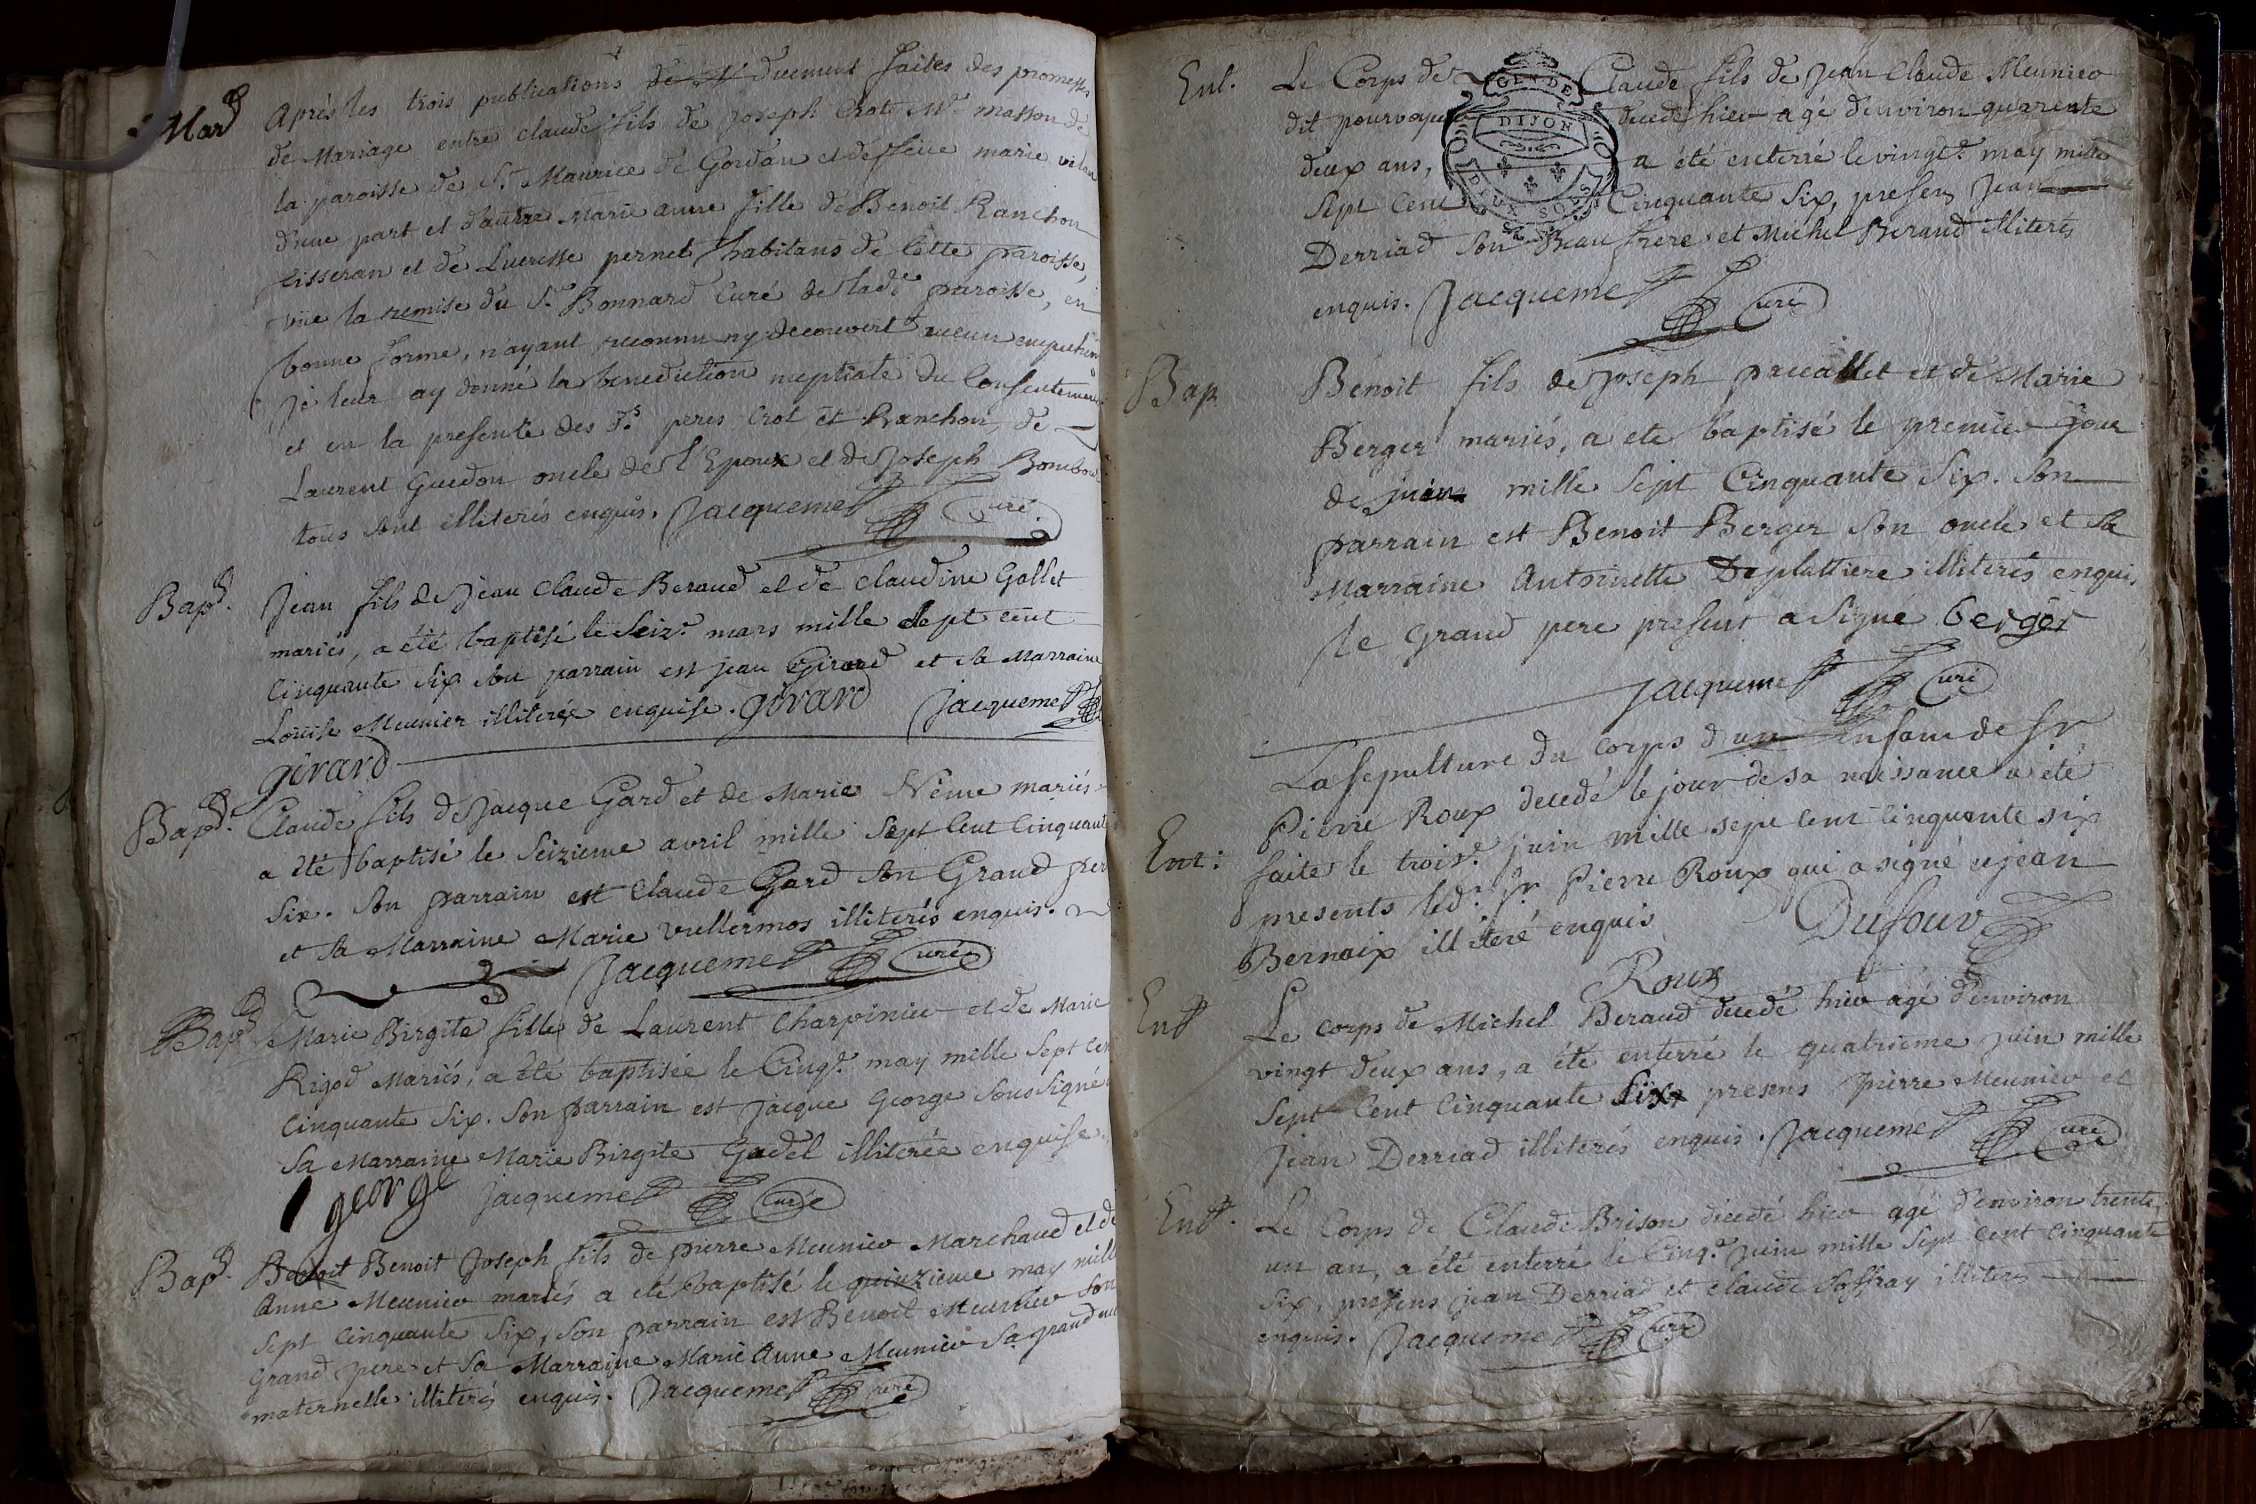 Mar^d
Après les trois publications duement faites des promesses
de Mariage entre claude fils de Joseph Crot M^e masson de
la paroisse de S^t Maurice de Gordan et de feüe marie
d'une part et d'autre Marie anne fille de Benoit Ranchon
tisseran et de Lucresse pernet habitans de Cette paroisse,
vüe la remise du S^r Bonnard Curé de lad^e paroisse, en
bonne forme, n'ayant reconnu ny decouvert aucun
je leur ay donné la benediction nuptiale du Consentement
et en la presente des d^s peres Crot et Ranchon, de
Laurent Guedon oncle de l'Epoux et de Joseph
tous sont illiterés enquis. Jacqueme Curé
Bap^d.
Jean fils de Jean Claude Beraud et de Claudine Gollet
mariés, a été baptisé le Seiz^e mars mille Sept cent
Cinquante Six son parrain est jean Girard et Sa Marraine
Louise Meunier illiterée enquise. girard Jacqueme
girard
Bap^d.
Claude fils de Jacque Gard et de Marie Néme mariés
a été baptisé le Seizieme avril mille Sept Cent Cinquante
Six. Son parrain est Claude Gard Son Grand pere
et Sa Marraine Marie vullermos illiterés enquis.
Jacqueme Curé
Bap^d
Marie Birgite fille de Laurent Charpinier et de Marie
Rigod Mariés, a été baptisée le Cinq^e may mille Sept Cen
Cinquante Six. Son parrain est Jacque George Sous Signé
Sa Marraine Marie Birgite Gadel illiterée enquise.
george Jacqueme Curé
Bap^d.
Benoit Benoit Joseph fils de pierre Meunier Marchand et de
Anne Meunier mariés a été baptisé le quinzieme may mille
Sept Cinquante Six, Son parrain est Benoit Meunier Son
Grand pere et Sa Marraine Marie Anne Meunier Sa grand
maternelle illiterés enquis. Jacqueme Curé
Ent.
Le Corps de Claude fils de Jean Claude Meunier
dit decedé hier agé d'environ quarente
deux ans, a été enterré le vingt^e may mille
Sept Cent Cinquante Six, presens Jean
Derriad Son Beau frere et Michel Beraud illiterés
enquis. Jacqueme Curé
GEN DE
DIJON
DEUX SOLS
Bap
Benoit fils de Joseph et de Marie
Berger mariés, a eté baptisé le premier jour
de juin mille Sept Cinquante Six. Son
parrain est Benoit Berger Son oncle et Sa
Marraine Antoinette Deplattiere illiterés enquis,
le Grand pere present a Signé berger
Jacqueme Curé
Ent:
La sepulture du corps d'un enfant de S^r
Pierre Roux decedé le jour de sa naissance a été
faite le trois^e juin mille sept cent cinquante six
presents led^t S^r Pierre Roux qui a signé et jean
Bernaix illiteré enquis
Dufour
Roux
Ent^t
Le corps de Michel Beraud decedé hier agé d'environ
vingt deux ans, a été enterré le quatrieme juin mille
Sept Cent Cinquante Six, presens pierre Meunier et
Jean Derriad illiterés enquis. Jacqueme Curé
Ent^t.
Le Corps de Claude Brison decedé hier agé d'environ trente
un an, a été enterré le Cinq^e juin mille Sept Cent Cinquante
Six, presens jean Derriad et Claude Joffray illiterés
enquis. Jacqueme Curé